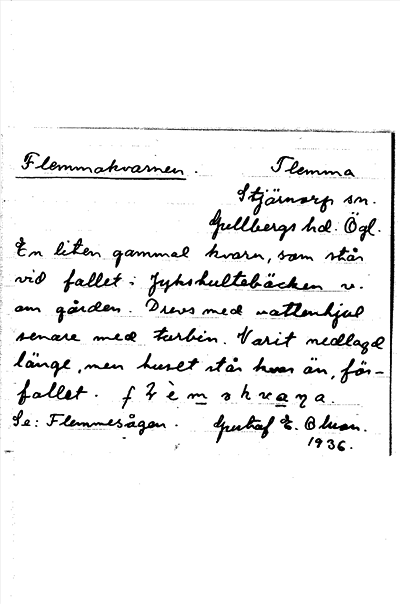 Flemmakvarnen. Flemma
Stjärnorp sn.
Gullbergs hd. Ögl.
En liten gammal kvarn, som står
vid fallet i Jykshultebäcken v.
om gården. Drevs med vattenhjul
senare med turbin. Varit nedlagd
länge, men huset står kvar än, för-
fallet.
Se: Flemmesågen. Gustaf E. Olsson.
1936.